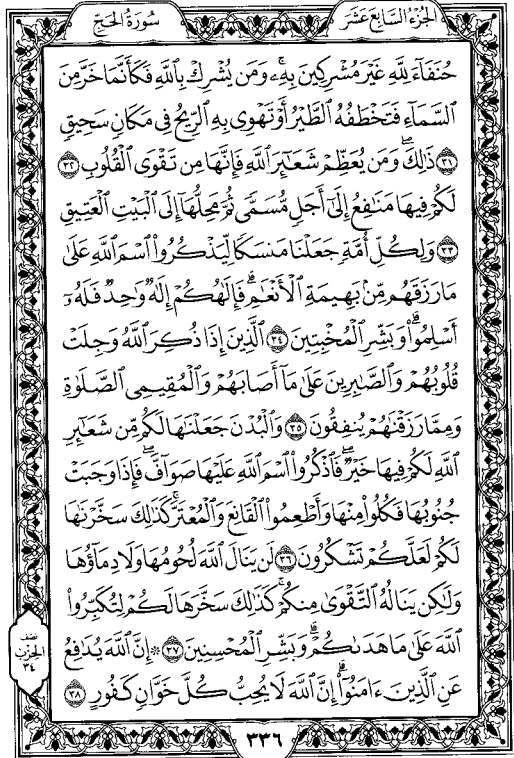 الجزء السابع عشر
سورة الحج
حُنَفَآءَ لِلَّهِ غَيْرَ مُشْرِكِينَ بِهِۦۚ وَمَن يُشْرِكْ بِٱللَّهِ فَكَأَنَّمَا خَرَّ مِنَ
ٱلسَّمَآءِ فَتَخْطَفُهُ ٱلطَّيْرُ أَوْ تَهْوِى بِهِ ٱلرِّيحُ فِى مَكَانٍ سَحِيقٍ
٣١ ذَٰلِكَۖ وَمَن يُعَظِّمْ شَعَٰٓئِرَ ٱللَّهِ فَإِنَّهَا مِن تَقْوَى ٱلْقُلُوبِ ٣٢
لَكُمْ فِيهَا مَنَٰفِعُ إِلَىٰٓ أَجَلٍ مُّسَمًّى ثُمَّ مَحِلُّهَآ إِلَى ٱلْبَيْتِ ٱلْعَتِيقِ
٣٣ وَلِكُلِّ أُمَّةٍ جَعَلْنَا مَنسَكًا لِّيَذْكُرُوا۟ ٱسْمَ ٱللَّهِ عَلَىٰ
مَا رَزَقَهُم مِّنۢ بَهِيمَةِ ٱلْأَنْعَٰمِۗ فَإِلَٰهُكُمْ إِلَٰهٌ وَٰحِدٌ فَلَهُۥٓ
أَسْلِمُوا۟ۗ وَبَشِّرِ ٱلْمُخْبِتِينَ ٣٤ ٱلَّذِينَ إِذَا ذُكِرَ ٱللَّهُ وَجِلَتْ
قُلُوبُهُمْ وَٱلصَّٰبِرِينَ عَلَىٰ مَآ أَصَابَهُمْ وَٱلْمُقِيمِى ٱلصَّلَوٰةِ
وَمِمَّا رَزَقْنَٰهُمْ يُنفِقُونَ ٣٥ وَٱلْبُدْنَ جَعَلْنَٰهَا لَكُم مِّن شَعَٰٓئِرِ
ٱللَّهِ لَكُمْ فِيهَا خَيْرٌۖ فَٱذْكُرُوا۟ ٱسْمَ ٱللَّهِ عَلَيْهَا صَوَآفَّۖ فَإِذَا وَجَبَتْ
جُنُوبُهَا فَكُلُوا۟ مِنْهَا وَأَطْعِمُوا۟ ٱلْقَانِعَ وَٱلْمُعْتَرَّۚ كَذَٰلِكَ سَخَّرْنَٰهَا
لَكُمْ لَعَلَّكُمْ تَشْكُرُونَ ٣٦ لَن يَنَالَ ٱللَّهَ لُحُومُهَا وَلَا دِمَآؤُهَا
وَلَٰكِن يَنَالُهُ ٱلتَّقْوَىٰ مِنكُمْۚ كَذَٰلِكَ سَخَّرَهَا لَكُمْ لِتُكَبِّرُوا۟
ٱللَّهَ عَلَىٰ مَا هَدَىٰكُمْۗ وَبَشِّرِ ٱلْمُحْسِنِينَ ٣٧ ۞ إِنَّ ٱللَّهَ يُدَٰفِعُ
عَنِ ٱلَّذِينَ ءَامَنُوٓا۟ۗ إِنَّ ٱللَّهَ لَا يُحِبُّ كُلَّ خَوَّانٍ كَفُورٍ ٣٨
نصف
الحزب
٣٤
٣٣٦